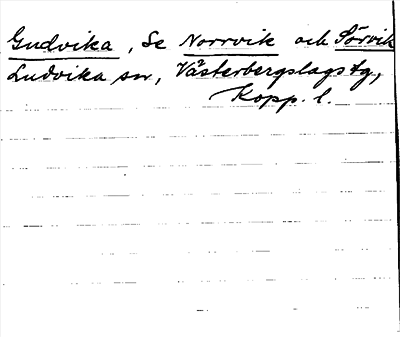 Gudvika, Se Norrvik och Sörvik
Ludvika sn, Västerbergslags tg,
Kopp. l.